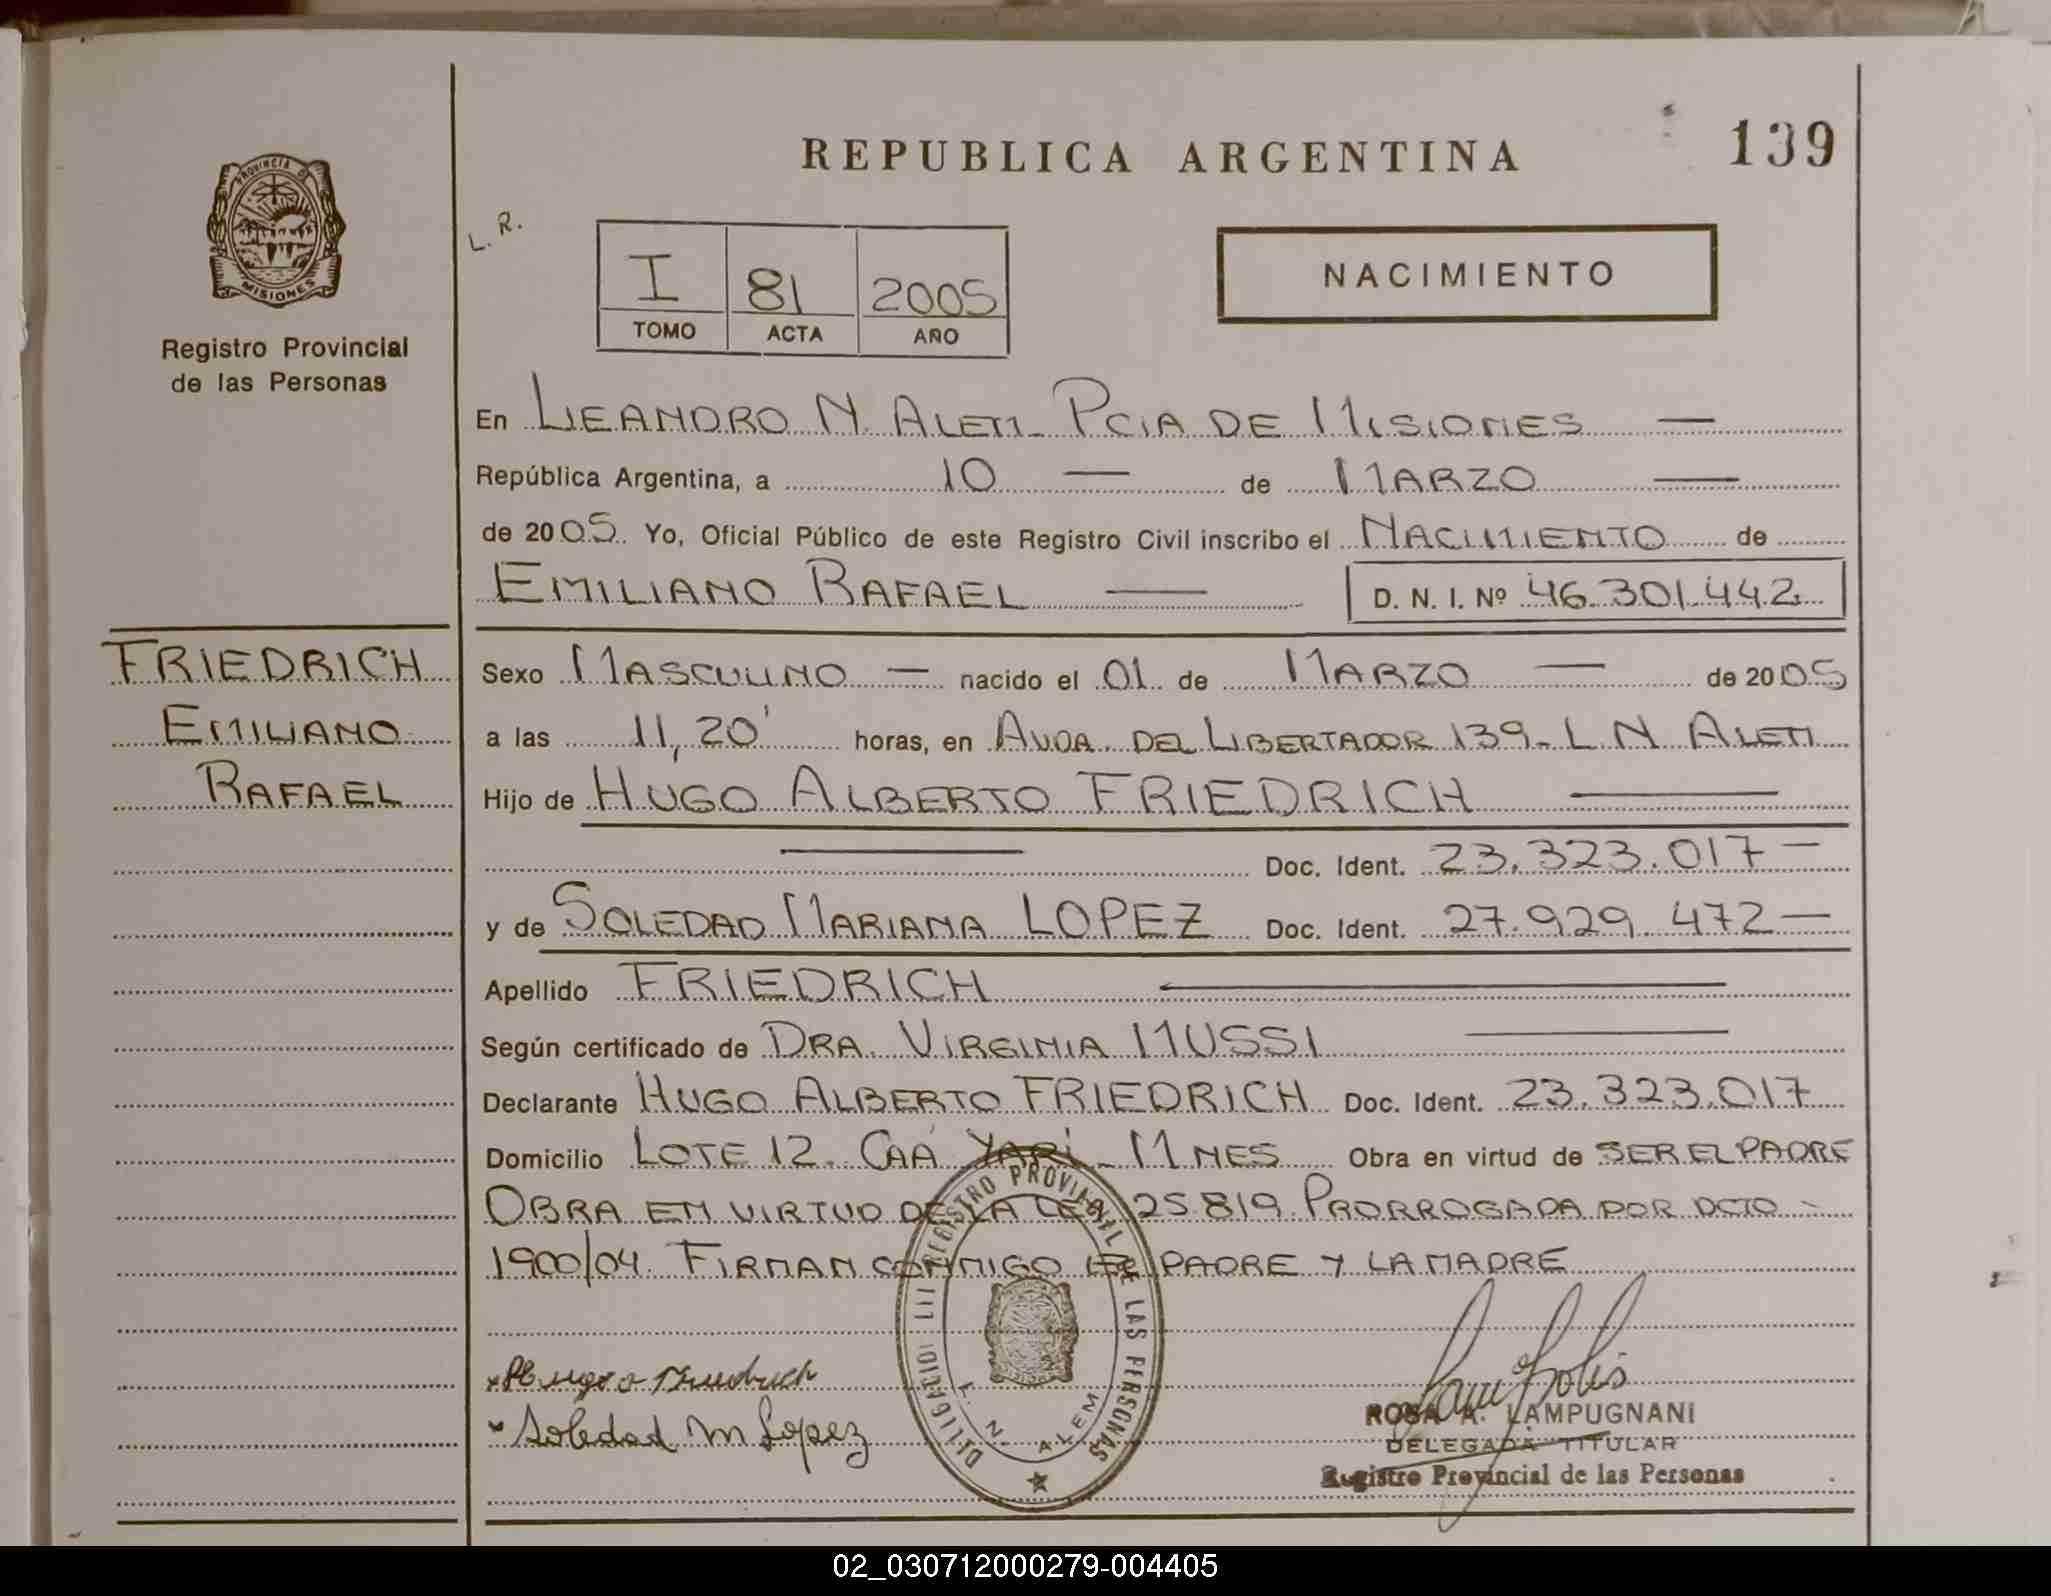 REPUBLICA ARGENTINA
139
PROVINCIA DE
MISIONES
Registro Provincial
de las Personas
L. R.
I 81 2005
TOMO ACTA AÑO
NACIMIENTO
En LEANDRO N. ALEM - PCIA DE MISIONES —
República Argentina, a 10 — de MARZO —
de 2005. Yo, Oficial Público de este Registro Civil inscribo el NACIMIENTO de
EMILIANO RAFAEL — D. N. I. Nº 46.301.442
FRIEDRICH
EMILIANO
RAFAEL
Sexo MASCULINO — nacido el 01 de MARZO — de 2005
a las 11,20' horas, en AVDA. DEL LIBERTADOR 139 - L N ALEM
Hijo de HUGO ALBERTO FRIEDRICH —
— Doc. Ident. 23.323.017 —
y de SOLEDAD MARIANA LOPEZ Doc. Ident. 27.929.472 —
Apellido FRIEDRICH —
Según certificado de DRA. VIRGINIA MUSSI —
Declarante HUGO ALBERTO FRIEDRICH Doc. Ident. 23.323.017
Domicilio LOTE 12. CAÁ YARÍ - MNES Obra en virtud de SER EL PADRE
OBRA EN VIRTUD DE LA LEY 25.819 PRORROGADA POR DCTO -
1900/04. FIRMAN CONMIGO EL PADRE Y LA MADRE
x Hugo Friedrich
x Soledad M Lopez
REGISTRO PROVINCIAL DE LAS PERSONAS
L. N. ALEM
ROSA A. LAMPUGNANI
DELEGADA TITULAR
Registro Provincial de las Personas
02_030712000279-004405